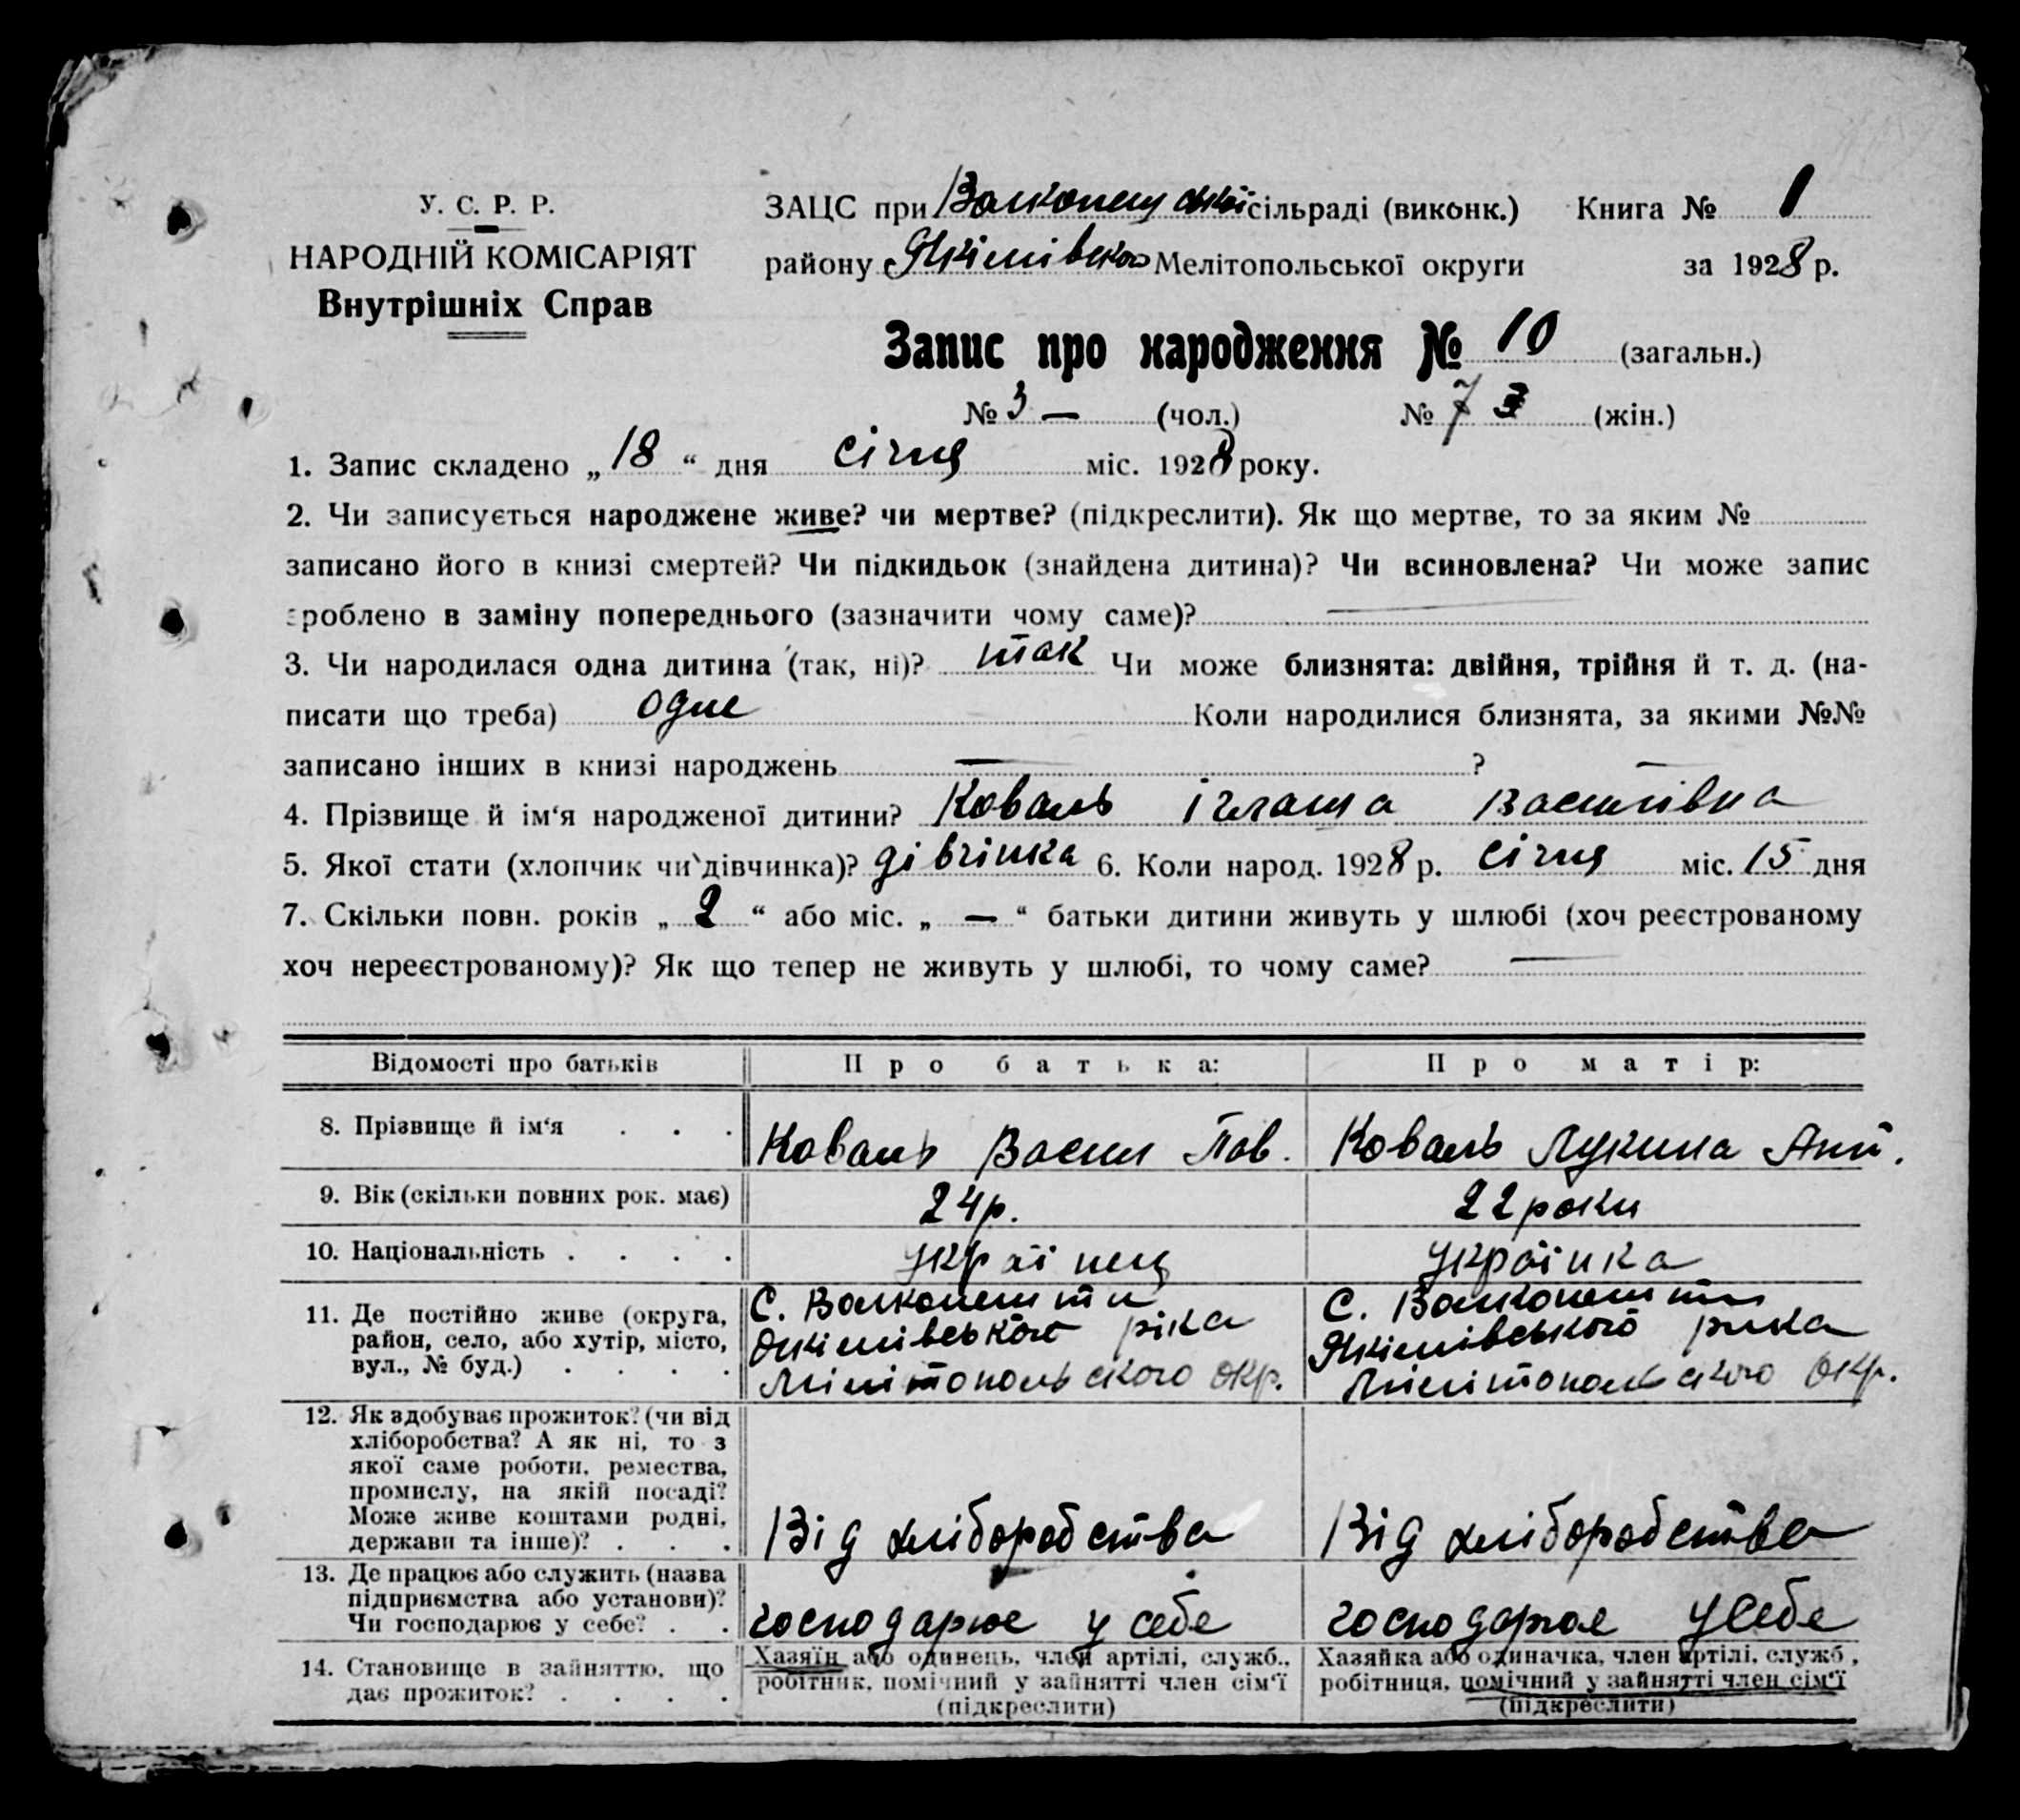 У. С. Р. Р.
НАРОДНІЙ КОМІСАРІЯТ
Внутрішніх Справ
ЗАЦС при Волконешської сільраді (виконк.) Книга № 1
району Якімівського Мелітопольської округи за 1928 р.
Запис про народження № 10 (загальн.)
№ 3 — (чол.) № 7 3 (жін.)
1. Запис складено „18“ дня січня міс. 1928 року.
2. Чи записується народжене живе? чи мертве? (підкреслити). Як що мертве, то за яким №
записано його в книзі смертей? Чи підкидьок (знайдена дитина)? Чи всиновлена? Чи може запис
зроблено в заміну попереднього (зазначити чому саме)? —
3. Чи народилася одна дитина (так, ні)? так Чи може близнята: двійня, трійня й т. д. (на-
писати що треба) одне Коли народилися близнята, за якими №№
записано інших в книзі народжень — ?
4. Прізвище й ім‘я народженої дитини? Коваль Василівна
5. Якої стати (хлопчик чи дівчинка)? дівчинка 6. Коли народ. 1928 р. січня міс. 15 дня
7. Скільки повн. років „2“ або міс. „—“ батьки дитини живуть у шлюбі (хоч реєстрованому
хоч нереєстрованому)? Як що тепер не живуть у шлюбі, то чому саме? —
Відомості про батьків Про батька: Про матір:
8. Прізвище й ім‘я . . . Коваль Васил Пав. Коваль Лукина
9. Вік (скільки повних рок. має) 24 р. 22 роки
10. Національність . . . . українец українка
11. Де постійно живе (округа,
район, село, або хутір, місто,
вул., № буд.) . . . .
С. Волконешти
Якімівського ріка
Мілітопольского окр.
С. Волконешти
Якімівського рика
Мілітопольского окр.
12. Як здобуває прожиток? (чи від
хліборобства? А як ні, то з
якої саме роботи, ремества,
промислу, на якій посаді?
Може живе коштами родні,
держави та інше)? . . .
Від хліборобства
Від хліборобства
13. Де працює або служить (назва
підприємства або установи)?
Чи господарює у себе? . .
господарює у себе
господарює у себе
14. Становище в зайняттю, що
дає прожиток? . . . .
Хазяїн або одинець, член артілі, служб.,
робітник, помічний у зайнятті член сім‘ї
(підкреслити)
Хазяйка або одиначка, член артілі, служб.,
робітниця, помічний у зайнятті член сім‘ї
(підкреслити)